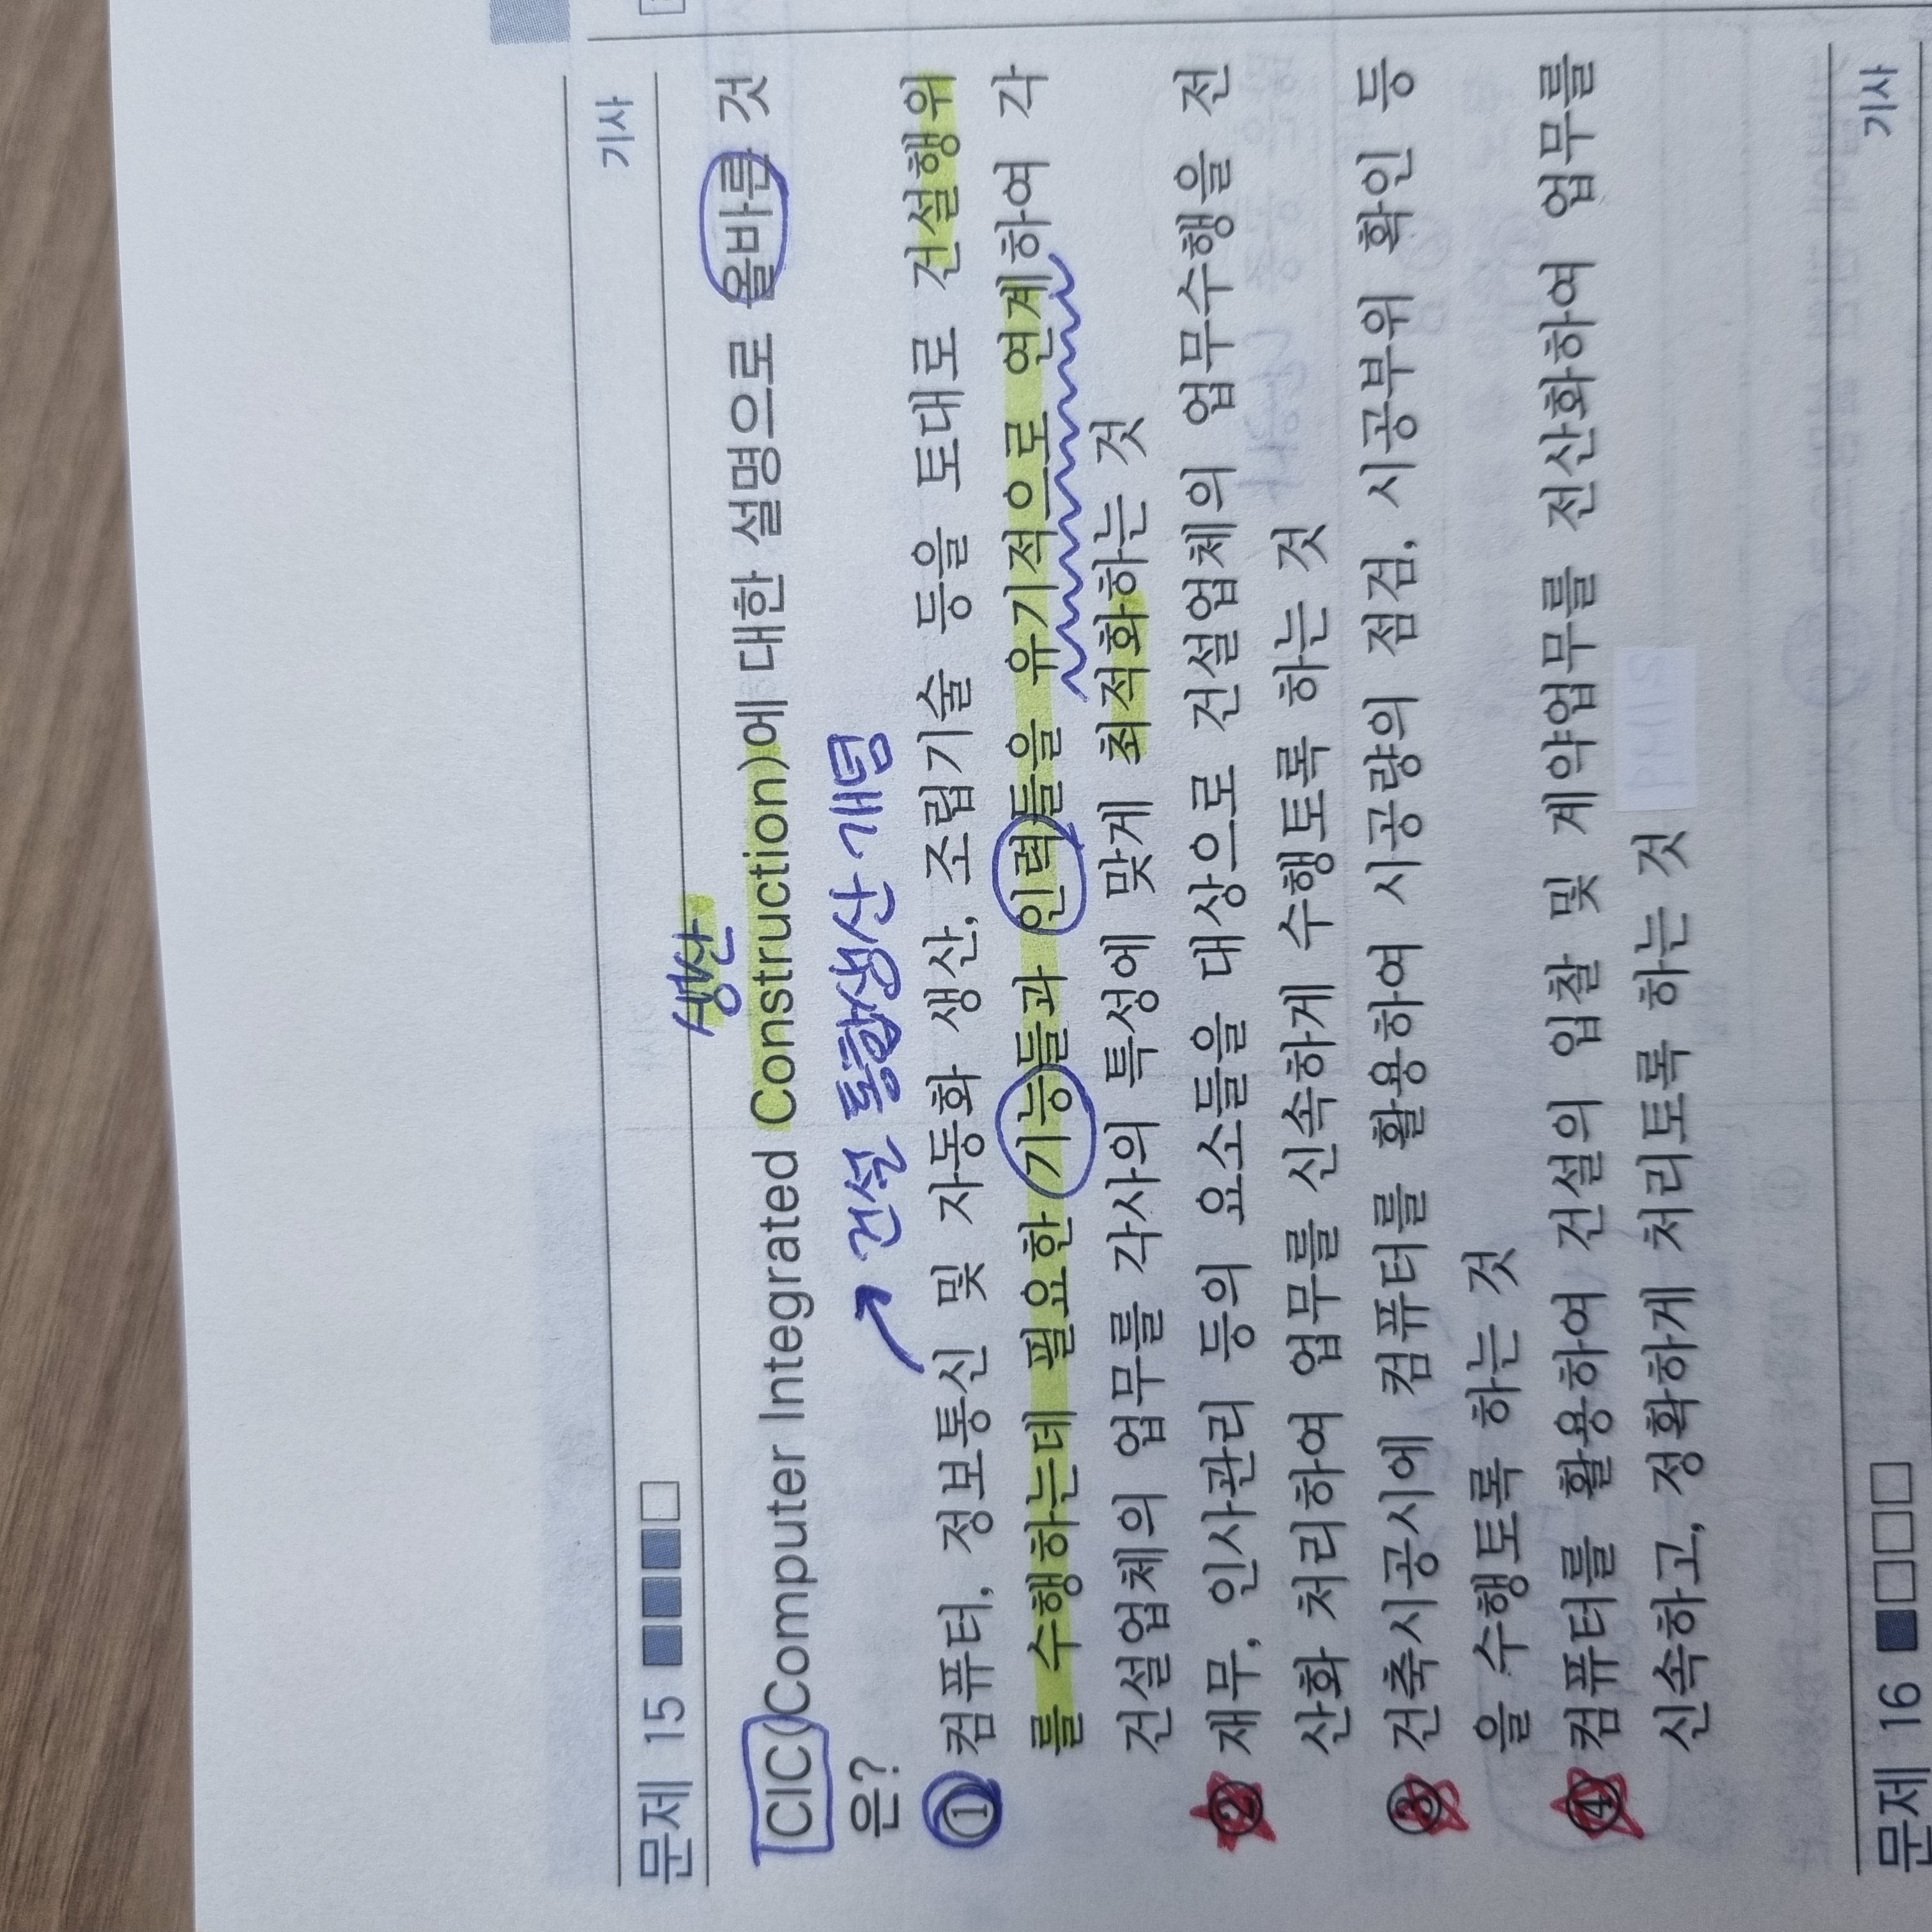 문제 15 ■■■□
기사
생산
CIC(Computer Integrated Construction)에 대한 설명으로 올바른 것
은?
건설 통합생산 개념
① 컴퓨터, 정보통신 및 자동화 생산, 조립기술 등을 토대로 건설행위
를 수행하는데 필요한 기능들과 인력들을 유기적으로 연계하여 각
건설업체의 업무를 각사의 특성에 맞게 최적화하는 것
② 재무, 인사관리 등의 요소들을 대상으로 건설업체의 업무수행을 전
산화 처리하여 업무를 신속하게 수행토록 하는 것
③ 건축시공시에 컴퓨터를 활용하여 시공량의 점검, 시공부위 확인 등
을 수행토록 하는 것
④ 컴퓨터를 활용하여 건설의 입찰 및 계약업무를 전산화하여 업무를
신속하고, 정확하게 처리토록 하는 것
문제 16 ■□□□
기사